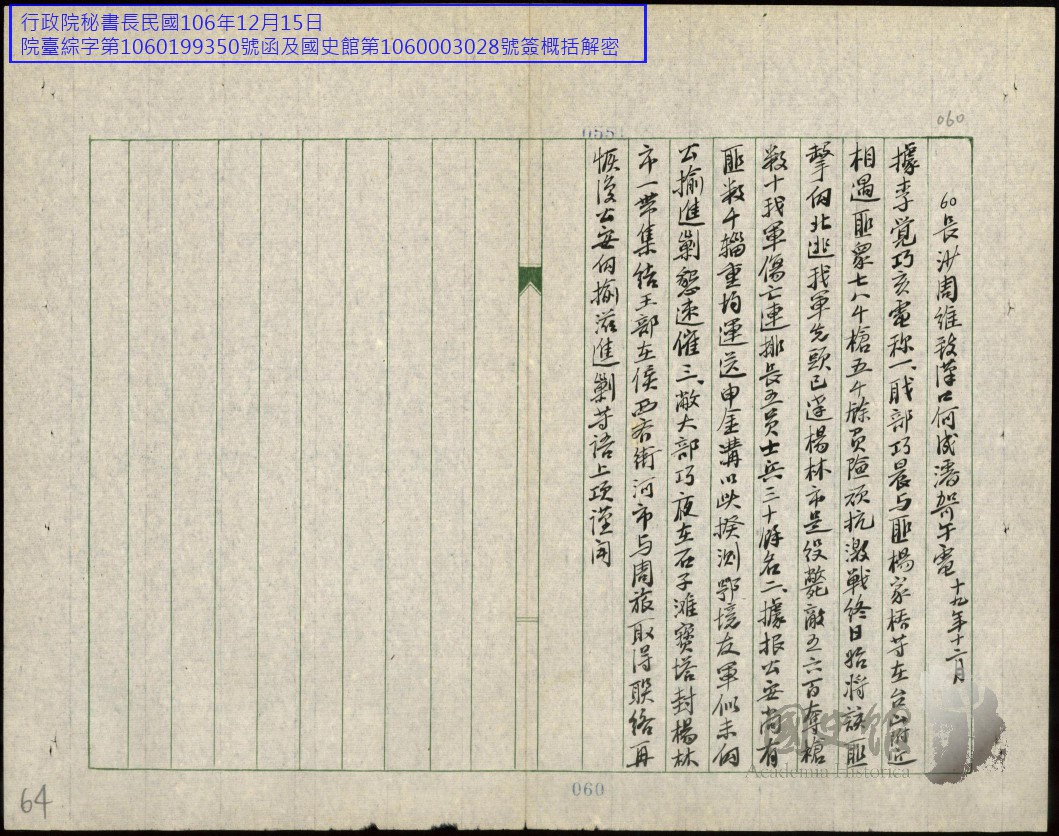 行政院秘書長民國106年12月15日
院臺綜字第1060199350號函及國史館第1060003028號簽概括解密
060
60長沙周維致漢口何成濬智午電 十九年十二月
據李覺巧亥電称一、戢部巧晨与匪楊家梧等在台山附近
相遇匪眾七八千槍五千餘負險頑抗激戰終日始將該匪
擊向北逃我軍先頭已達楊林市是役斃敵五六百奪槍
數十我軍傷亡連排長五員士兵三十餘名二、據报公安尚有
匪數千輜重均運送申金溝以此揆測鄂境友軍似未向
公揄進剿懇速催三、敝大部巧夜在石子滩寶塔封楊林
市一帶集結王部在侯西右衛河市与周旅取得联络再
恢復公安向揄滋進剿等語上項謹聞
國史館
Academia Historica
060
64